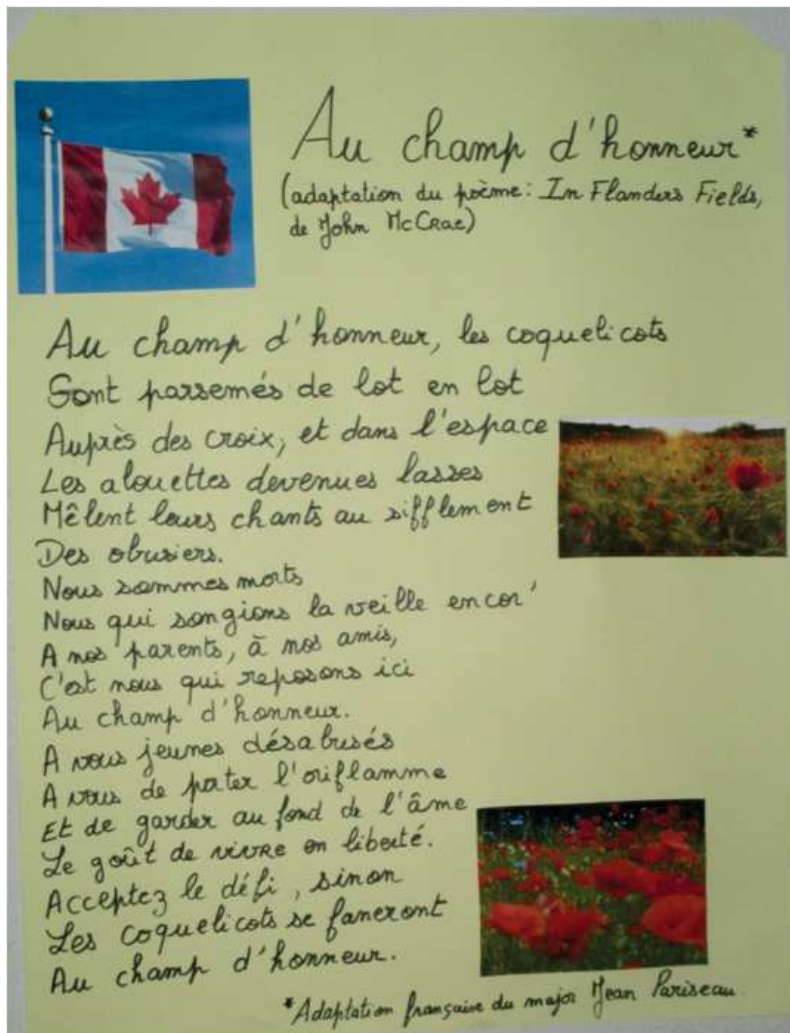 Au champ d'honneur*
(adaptation du poème: In Flanders Fields,
de John McCrae)
Au champ d'honneur, les coquelicots
Sont parsemés de lot en lot
Auprès des croix; et dans l'espace
Les alouettes devenues lasses
Mêlent leurs chants au sifflement
Des obusiers.
Nous sommes morts
Nous qui songions la veille encor'
A nos parents, à nos amis,
C'est nous qui reposons ici
Au champ d'honneur.
A vous jeunes désabusés
A vous de porter l'oriflamme
Et de garder au fond de l'âme
Le goût de vivre en liberté.
Acceptez le défi, sinon
Les coquelicots se faneront
Au champ d'honneur.
*Adaptation française du major Jean Pariseau.